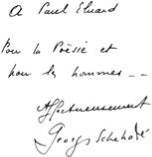 A Paul Eluard
Pour la Poésie et
pour les hommes --
Affectueusement
Georges Schehadé